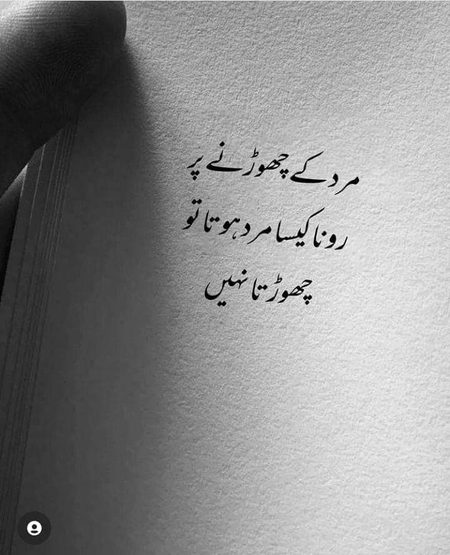 مرد کے چھوڑنے پر
رونا کیسا مرد ہوتا تو
چھوڑتا نہیں